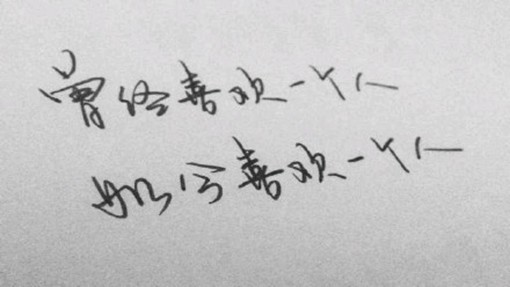 曾经喜欢一个人
如何喜欢一个人